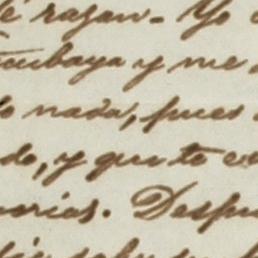 de razan. Yo
cubaya y me
o nada, pues
do, y que te e
orias. Despu